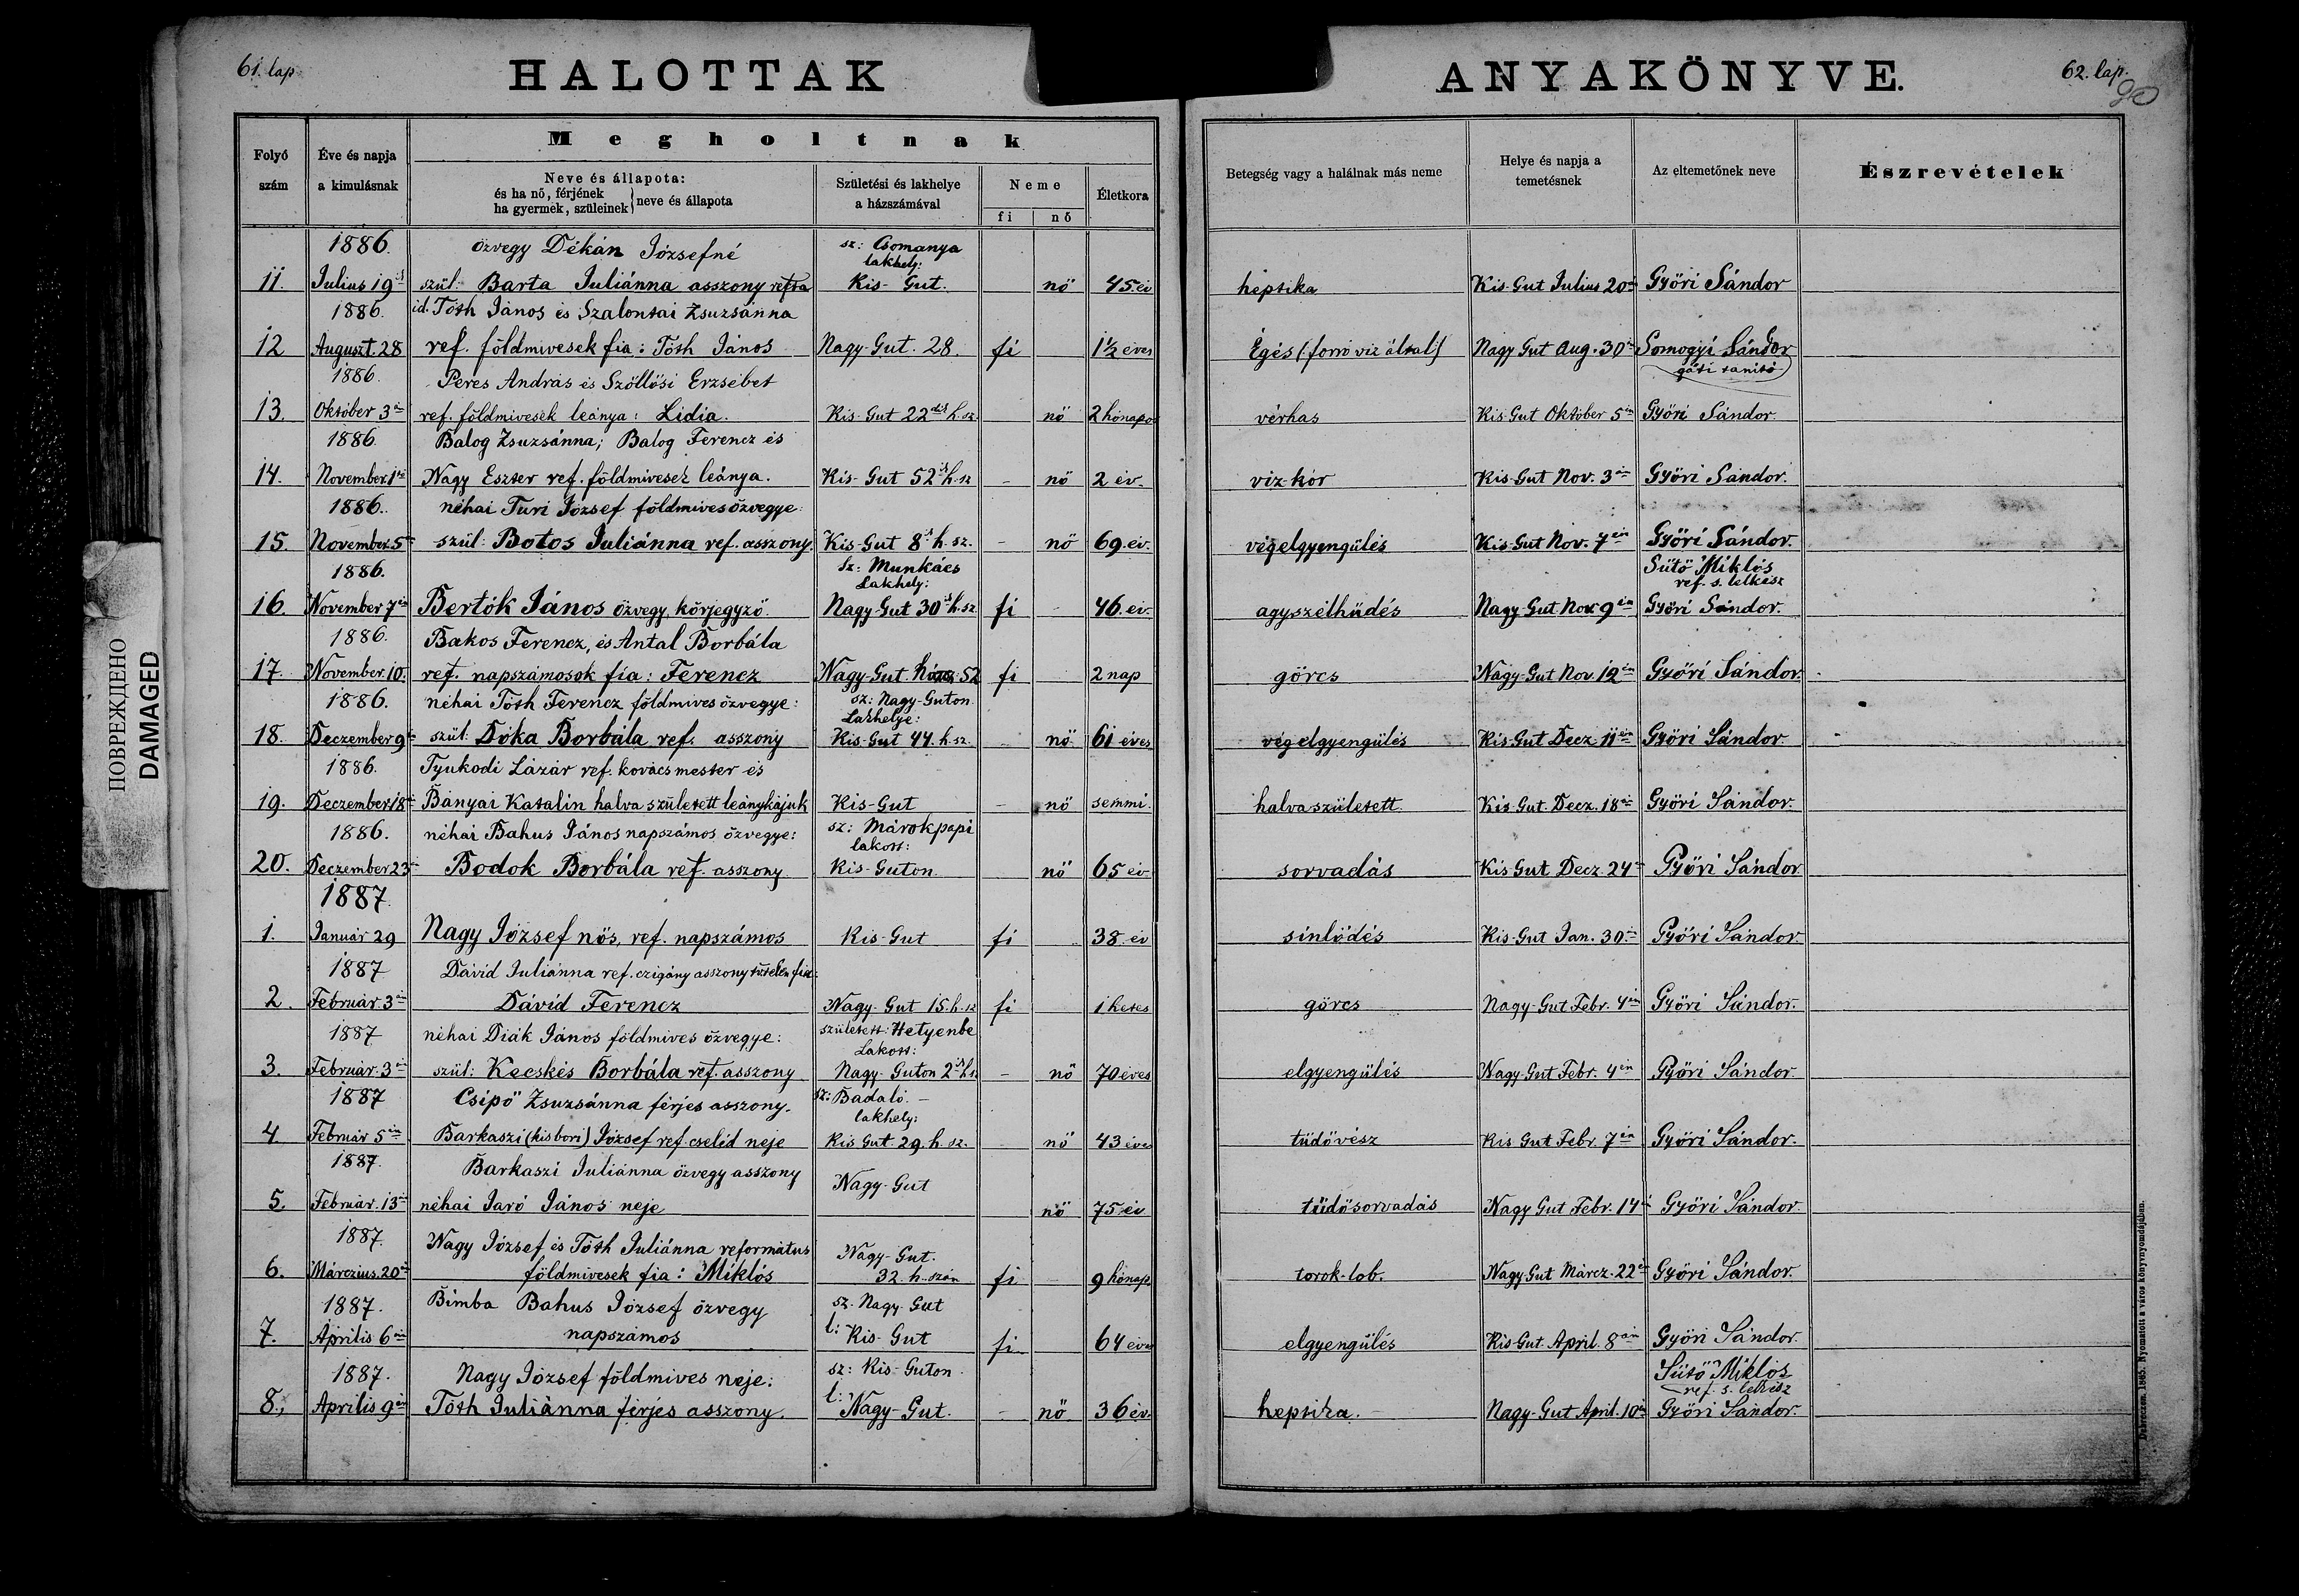 61. lap
HALOTTAK
ANYAKÖNYVE.
62. lap.
90
Folyó szám
Éve és napja a kimulásnak
Megholtnak
Neve és állapota:
és ha nő, férjének
ha gyermek, szüleinek
neve és állapota
Születési és lakhelye
a házszámával
Neme
fi nő
Életkora
Betegség vagy a halálnak más neme
Helye és napja a temetésnek
Az eltemetőnek neve
Észrevételek
1886. özvegy Dékán Józsefné sz: Csomanya
lakhely:
11. Julius 19 szül: Barta Juliánna asszony refta Kis-Gut. nő 45. év heptika Kis-Gut Julius 20 Győri Sándor
1886. id. Tóth János és Szalontai Zsuzsánna
12 Auguszt. 28 ref. földmivesek fia: Tóth János Nagy-Gut. 28. fi 1½ éves Égés (forró viz által) Nagy Gut Aug. 30 Somogyi Sándor
gáti tanitó
1886. Peres András és Szöllősi Erzsébet
13. Október 3án ref. földmivesek leánya: Lidia. Kis-Gut 22dik h. sz. nő 2 hónapos vérhas Kis-Gut Október 5én Győri Sándor.
1886. Balog Zsuzsánna; Balog Ferencz és
14. November 1 Nagy Eszter ref. földmivesek leánya. Kis-Gut 52 h. sz - nő 2 év. viz-kór Kis-Gut Nov. 3án Győri Sándor.
1886. néhai Turi József földmives özvegye:
15. November 5 szül: Botos Juliánna ref. asszony. Kis-Gut 8 h. sz. - nő 69. év. végelgyengülés Kis-Gut Nov. 7én Győri Sándor.
1886. Sz: Munkács Sütő Miklós
Lakhely: ref. s. lelkész
16 November 7én Bertók János özvegy, körjegyző. Nagy-Gut 30 h. sz. fi - 46. év. agyszélhüdés Nagy-Gut Nov. 9én Győri Sándor.
1886. Bakos Ferencz, és Antal Borbála
17 November 10. ref. napszámosok fia: Ferencz Nagy-Gut 52 fi 2 nap görcs Nagy-Gut Nov. 12én Győri Sándor.
1886. néhai Tóth Ferencz földmives özvegye: sz: Nagy-Guton
Lakhelye:
18. Deczember 9 szül: Dóka Borbála ref. asszony Kis-Gut 44. h. sz. - nő 61 éves végelgyengülés Kis-Gut Decz. 11én Győri Sándor.
1886. Tyukodi Lázár ref. kovács mester és
19. Deczember 18 Bányai Katalin halva született leánykájuk Kis-Gut - nő semmi. halva született. Kis-Gut. Decz. 18 Győri Sándor.
1886. néhai Bahus János napszámos özvegye: sz: Márokpapi
lakott:
20. Deczember 23 Bodok Borbála ref. asszony Kis-Guton. nő 65 év sorvadás Kis Gut Decz. 24 Győri Sándor.
1887.
1. Január 29 Nagy József nős, ref. napszámos Kis-Gut fi 38. év sinlődés Kis-Gut Jan. 30. Győri Sándor.
1887 Dávid Juliánna ref. czigány asszony fia:
2. Február. 3án Dávid Ferencz Nagy-Gut 15. h. sz fi 1 hetes görcs Nagy-Gut Febr. 4én Győri Sándor.
1887 néhai Diák János földmives özvegye: született: Hetyenbe
Lakott:
3. Február. 3án szül: Kecskés Borbála ref. asszony Nagy-Guton 2 h. - nő 70 éves elgyengülés Nagy-Gut Febr. 4én Győri Sándor.
1887 Csipő Zsuzsánna férjes asszony. sz: Badaló. -
lakhely:
4 Február 5én Barkaszi (kis bori) József ref. cseléd neje Kis Gut 29. h. sz. nő 43 éves tüdővész Kis Gut Febr. 7én Győri Sándor.
1887. Barkaszi Juliánna özvegy asszony Nagy-Gut
5. Február. 13 néhai Jaró János neje nő 75. év tüdősorvadás Nagy Gut Febr. 14 Győri Sándor
1887. Nagy József és Tóth Juliánna református Nagy-Gut.
6. Márczius. 20 földmivesek fia: Miklós 32. h. szám fi 9 hónap torok-lob. Nagy Gut Márcz. 22 Győri Sándor.
1887. Bimba Bahus József özvegy sz. Nagy-Gut
7. Április 6án napszámos l: Kis-Gut fi 64 éves elgyengülés Kis-Gut. April. 8án Győri Sándor.
1887. Nagy József földmives neje: sz: Kis-Guton. Sütő Miklós
ref. s. lelkész
8. Április 9én Tóth Juliánna férjes asszony. l: Nagy-Gut. - nő 36 év. heptika. Nagy-Gut April. 10én Győri Sándor.
Debreczen. 1865. Nyomatott a város könyvnyomdájában.
ПОВРЕЖДЕНО
DAMAGED